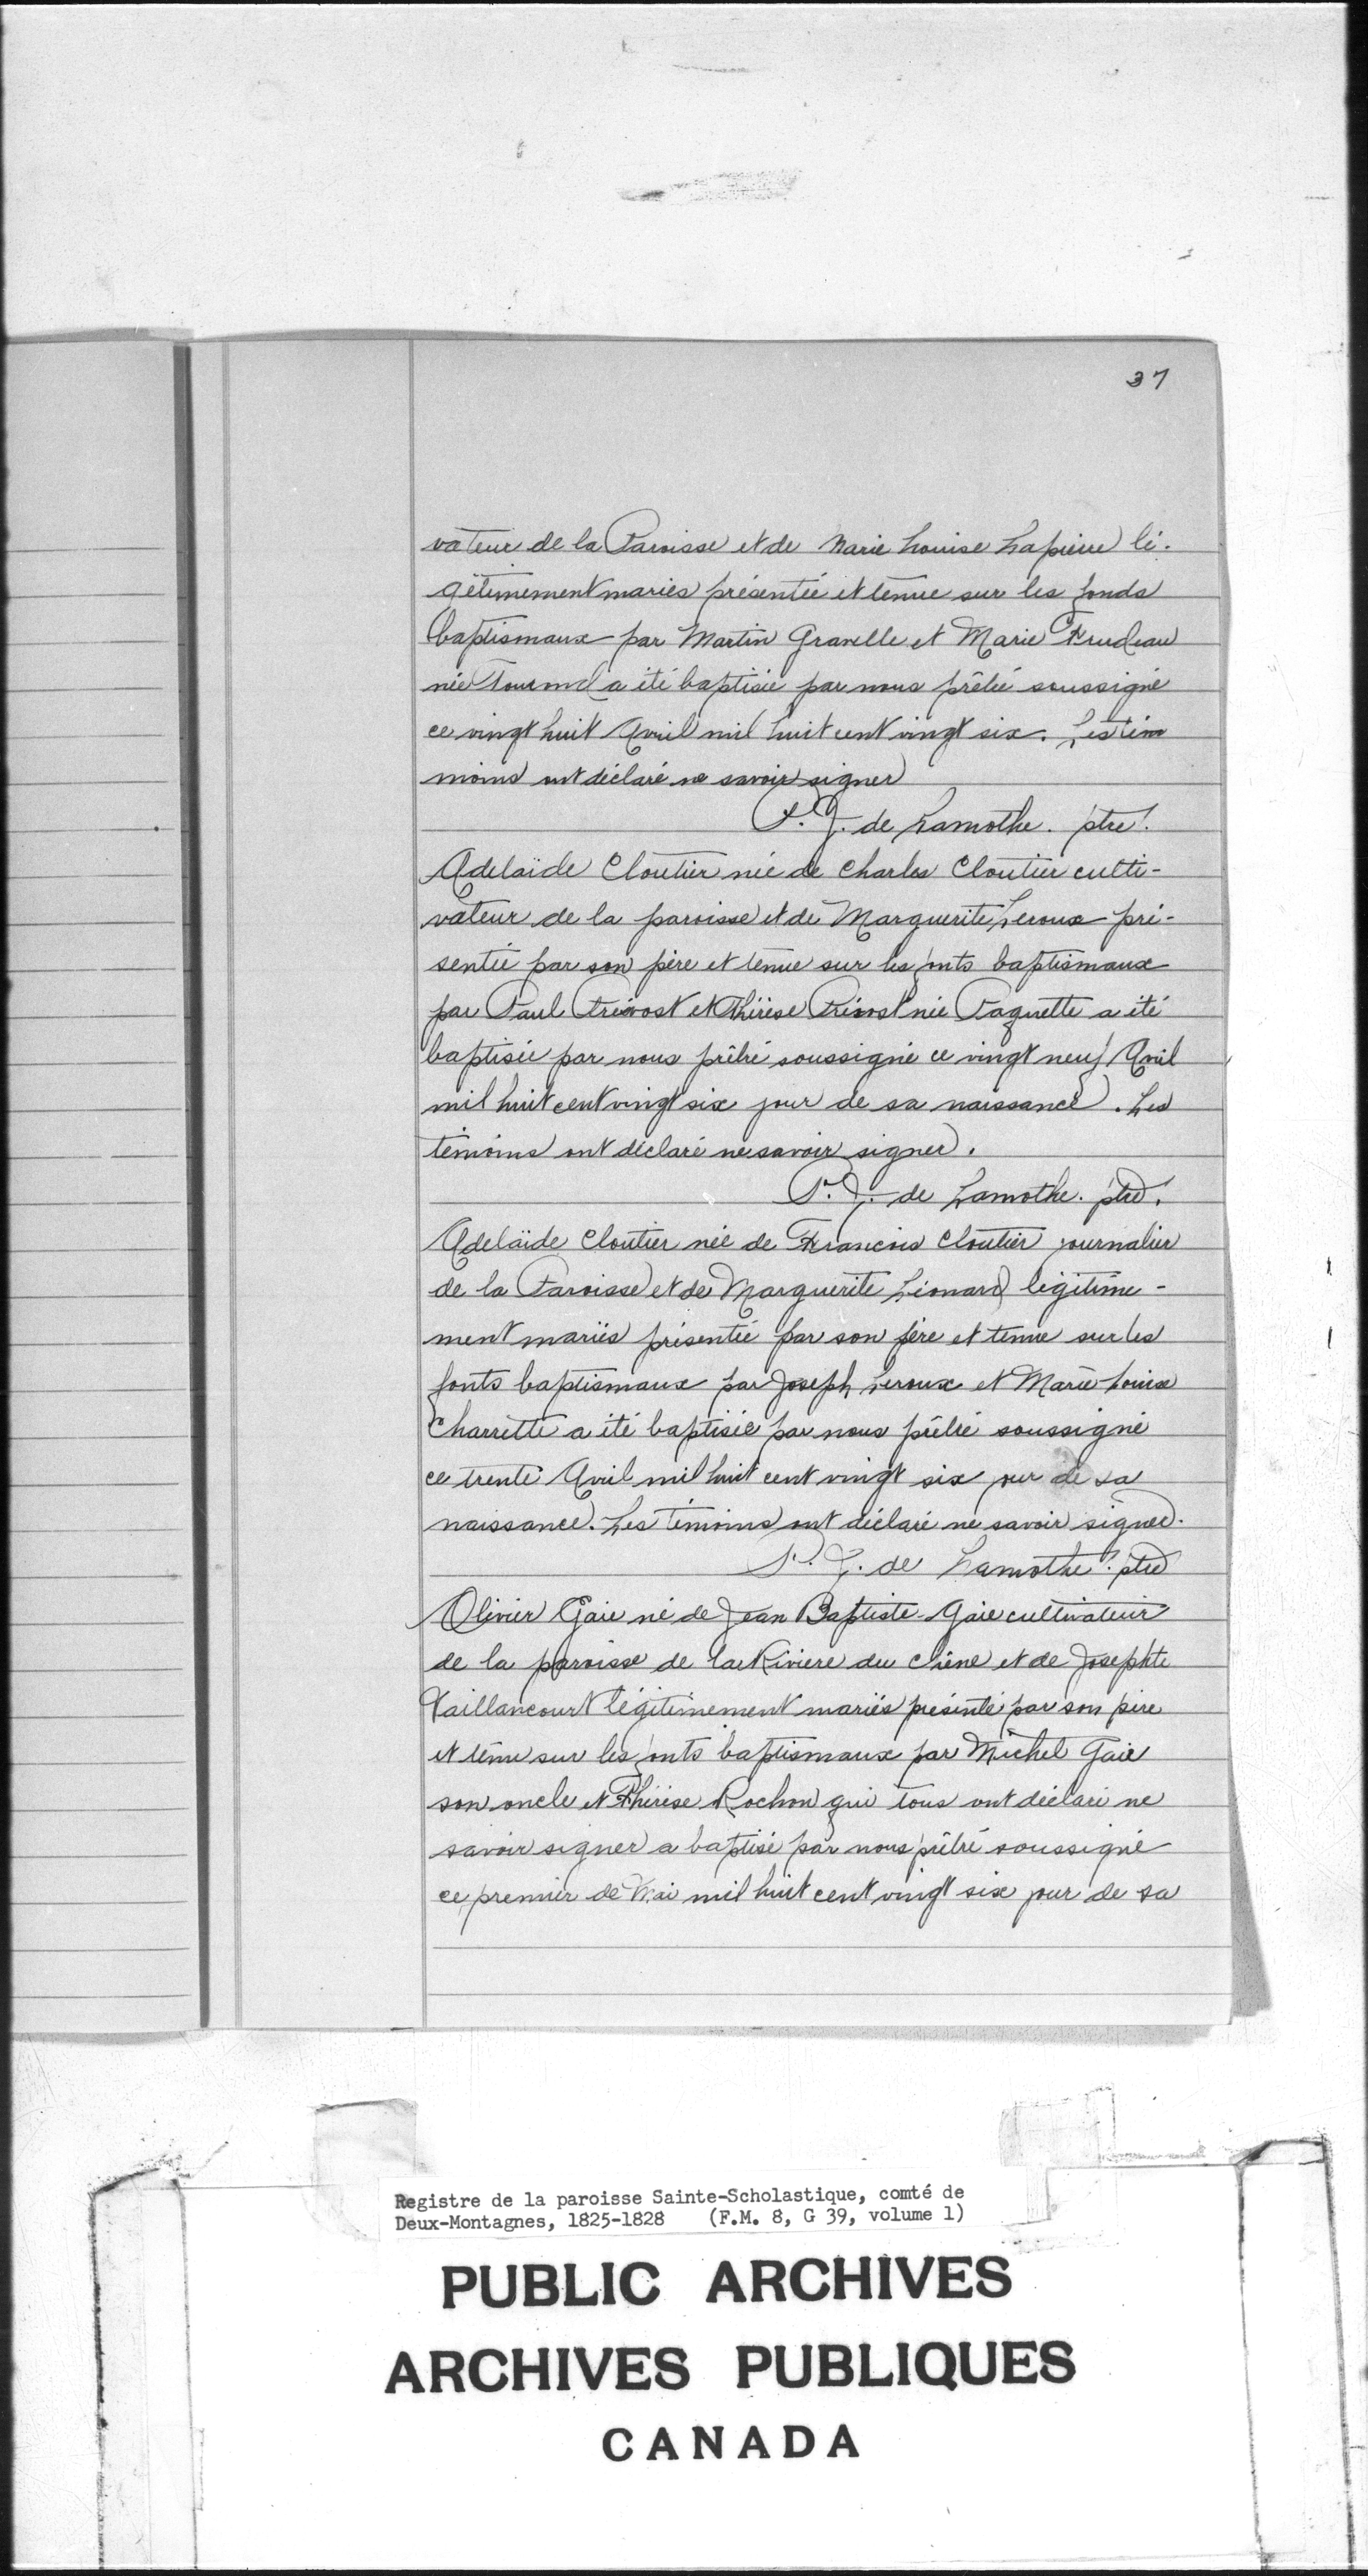 37
vateur de la Paroisse et de Marie Louise Lapierre lé-
gitimement mariés présentée et tenue sur les fonds
baptismaux par Martin Gravelle et Marie Trudeau
née Tourond a été baptisée par nous prêtre soussigné
ce vingt huit Avril mil huit cent vingt six. Les té
moins ont déclaré ne savoir signer
P. J. de Lamothe. ptre.
Adelaïde Cloutier née de Charles Cloutier culti-
vateur de la paroisse et de Marguerite Leroux pré-
sentée par son père et tenue sur les fonts baptismaux
par Paul Prévost et Thérèse Prévost née Paquette a été
baptisée par nous prêtre soussigné ce vingt neuf Avril
mil huit cent vingt six jour de sa naissance. Les
témoins ont déclaré ne savoir signer.
P. J. de Lamothe. ptre.
Adelaïde Cloutier née de Francois Cloutier journalier
de la Paroisse et de Marguerite Léonard légitime-
ment mariés présentée par son père et tenue sur les
fonts baptismaux par Joseph Leroux et Marie-Louise
Charrette a été baptisée par nous prêtre soussigné
ce trente Avril mil huit cent vingt six jour de sa
naissance. Les témoins ont déclaré ne savoir signer.
P. J. de Lamothe. ptre
Olivier Gaie né de Jean Baptiste Gaie cultivateur
de la paroisse de la Rivière du Chêne et de Josephte
Vaillancourt légitimement mariés présenté par son père
et tenu sur les fonts baptismaux par Michel Gaie
son oncle et Thérèse Rochon qui tous ont déclaré ne
savoir signer a baptisé par nous prêtre soussigné
ce premier de Mai mil huit cent vingt six jour de sa
Registre de la paroisse Sainte-Scholastique, comté de
Deux-Montagnes, 1825-1828 (F.M. 8, G 39, volume 1)
PUBLIC ARCHIVES
ARCHIVES PUBLIQUES
CANADA